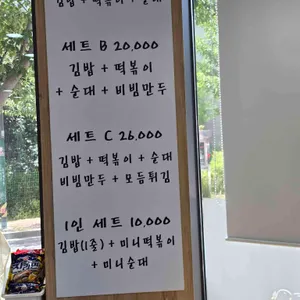 김밥 + 떡볶이 + 순대
세트 B 20,000
김밥 + 떡볶이
+ 순대 + 비빔만두
세트 C 26,000
김밥 + 떡볶이 + 순대
비빔만두 + 모듬튀김
1인 세트 10,000
김밥(1줄) + 미니떡볶이
+ 미니순대